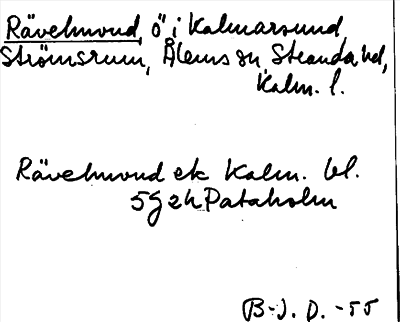 Rävelmond, ö i Kalmarsund,
Strömsrum, Ålems sn, Stranda hd,
Kalm. l.
Rävelmond ek Kalm. bl.
5g2h Pataholm
B-J. D. -55